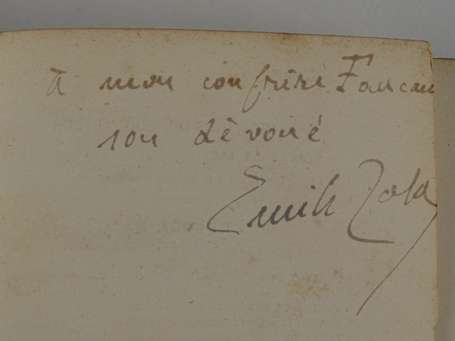 à mon confrère Faucon
son dévoué
Emile Zola